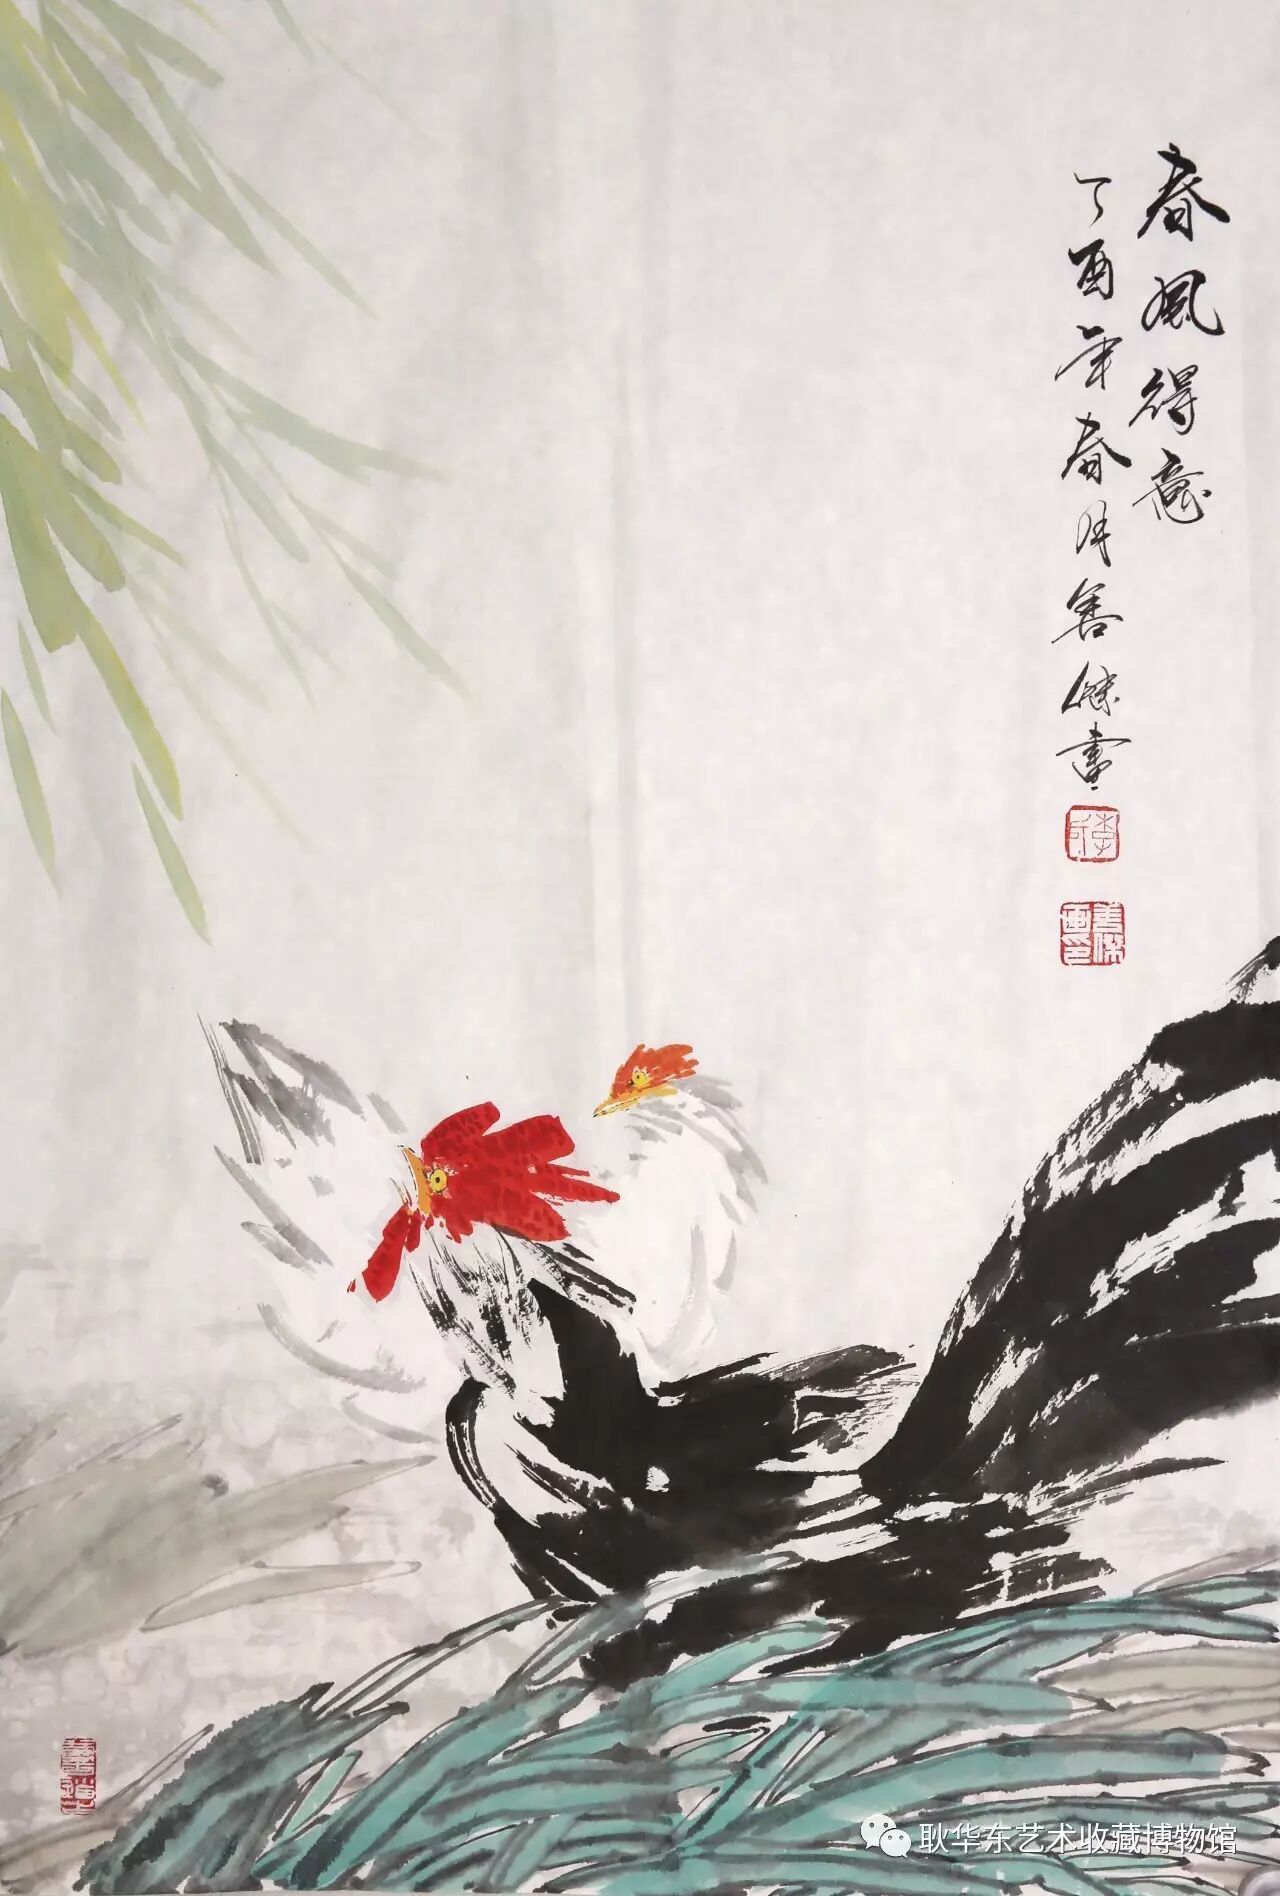 春风得意
丁酉年春月善傑画
善傑画印
耿华东艺术收藏博物馆